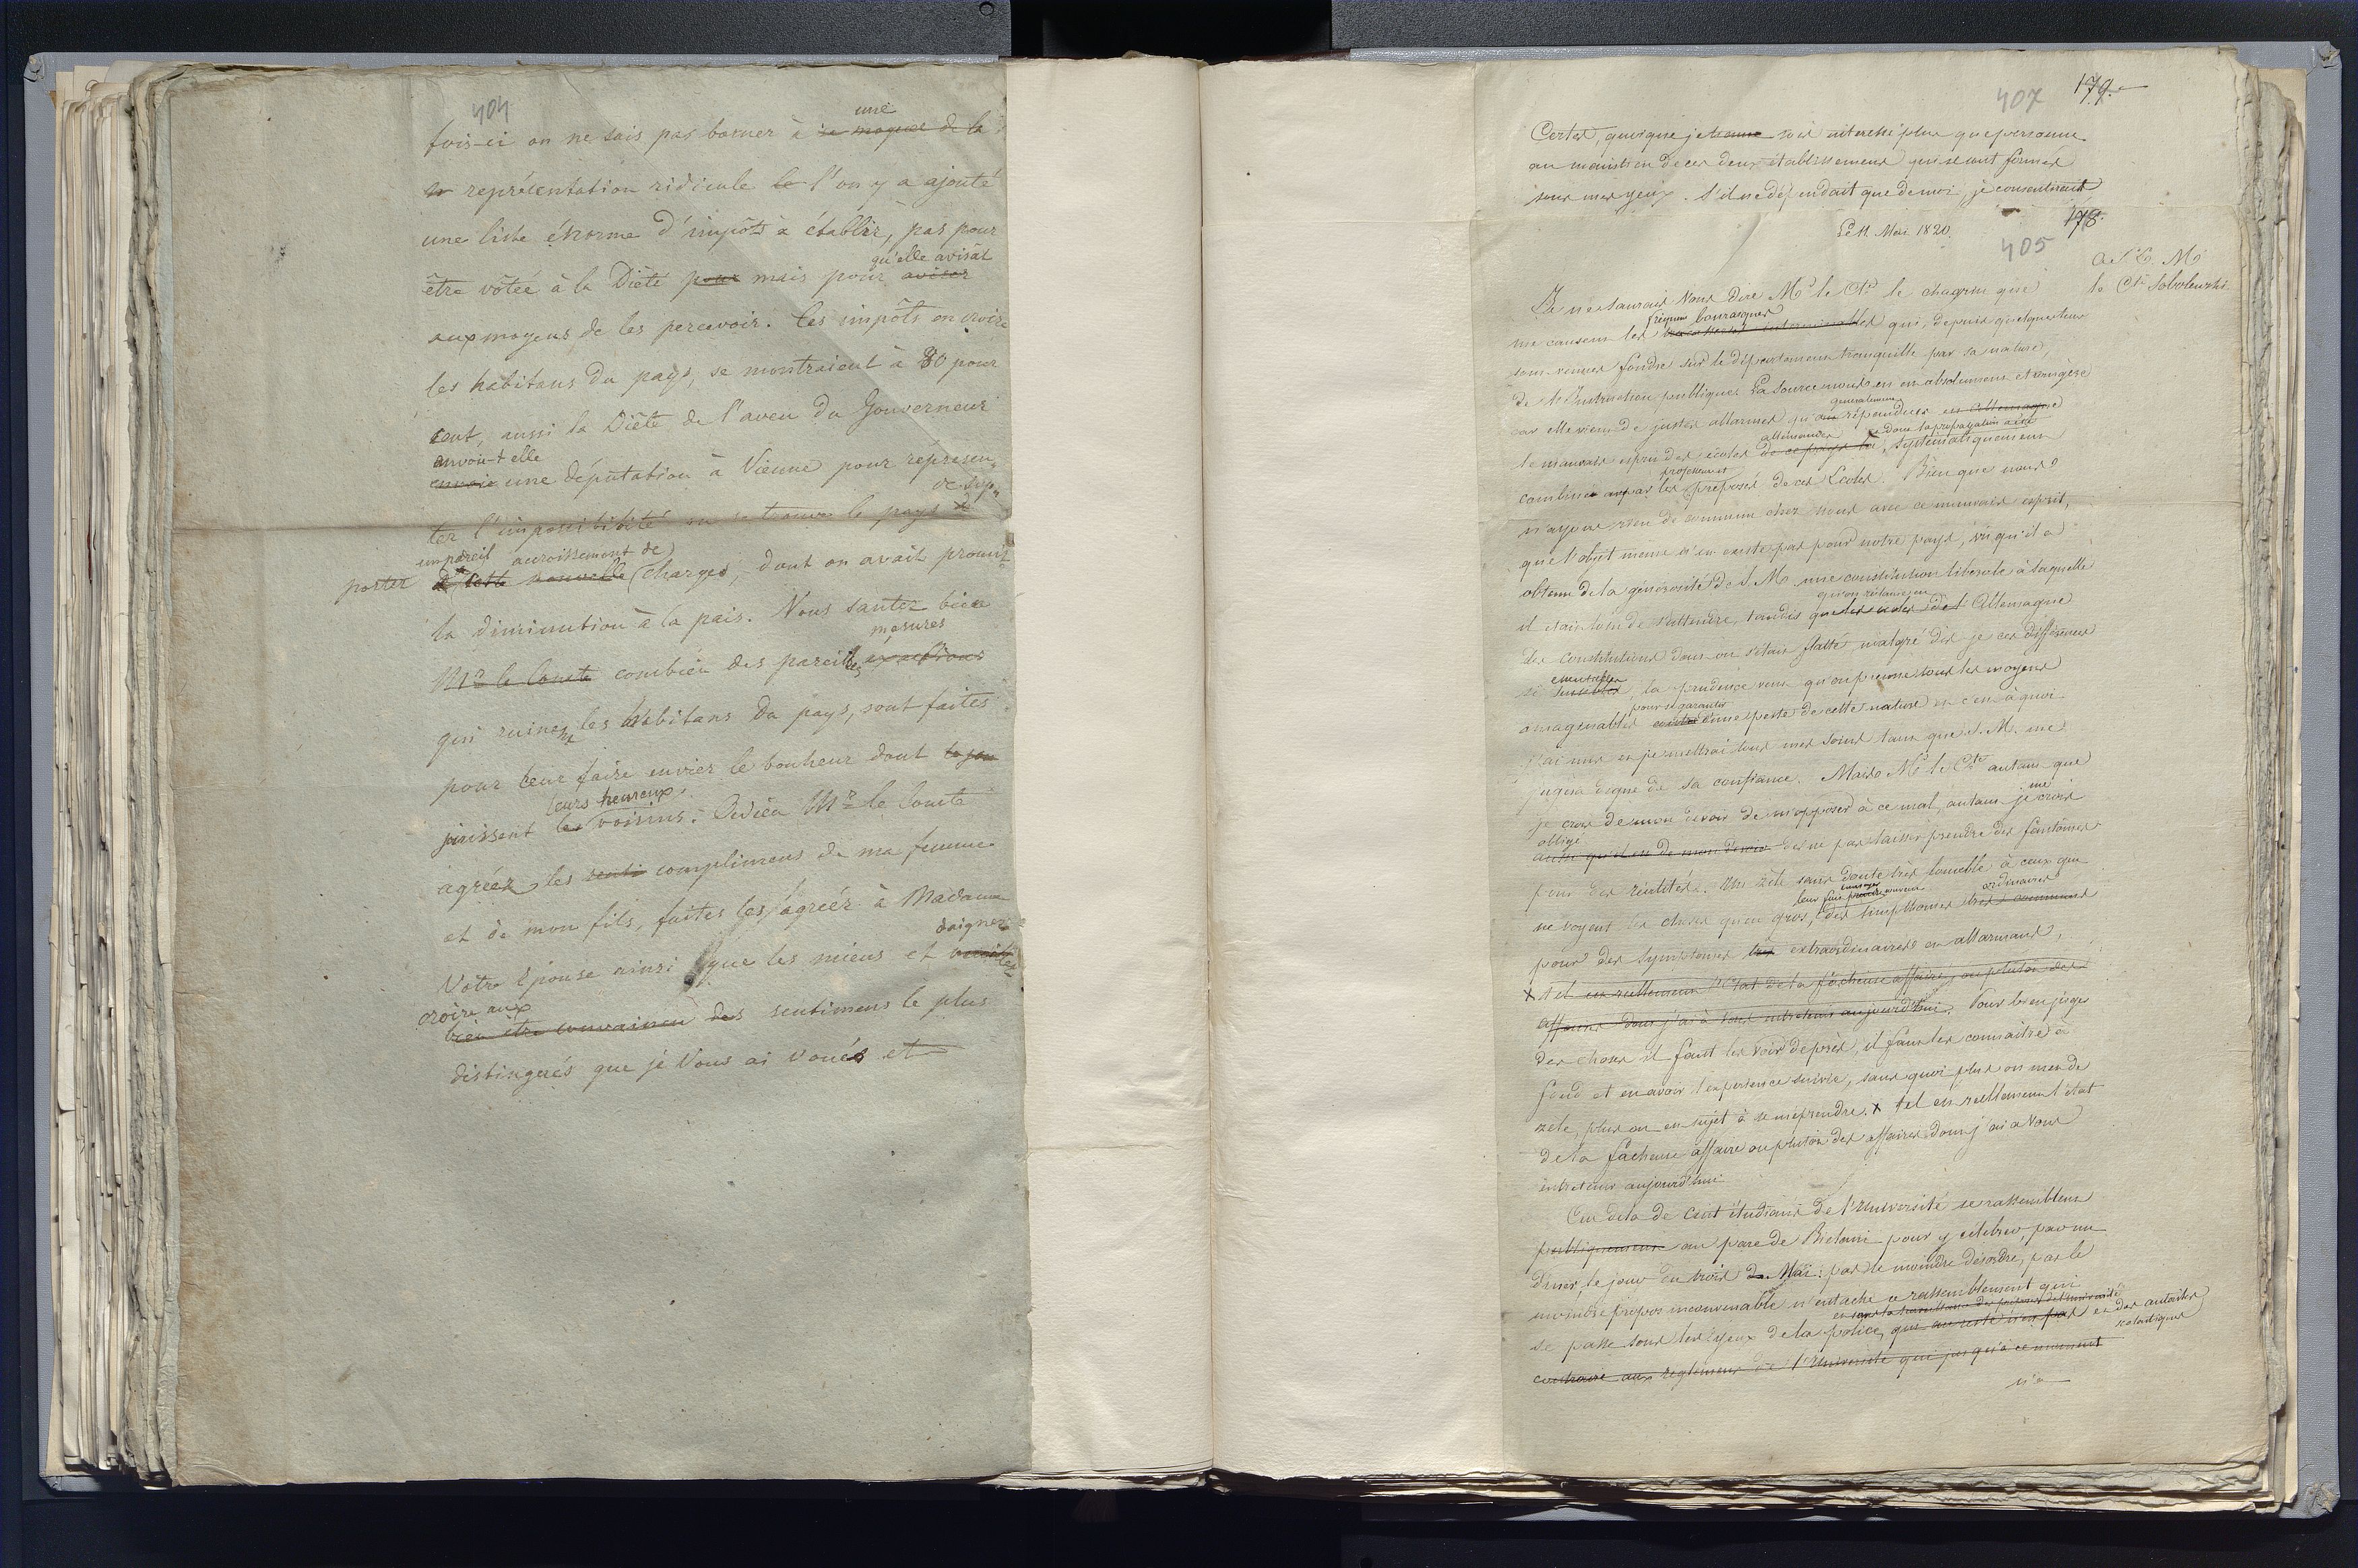 404
une
fois-ci on ne sais pas borner à la de la
représentation ridicule le l'on y a ajouté
une liste énorme d'impôts à établir, pas pour
qu'elle avisât
être votée à la Diète pour mais pour aviser
aux moyens de les percevoir. Ces impôts en croire
les habitans du pays, se montraient à 80 pour
cent, aussi la Diète de l'aveu du Gouverneur
envoit elle
envoie une députation à Vienne pour représen„
de sup„
ter l'impossibilité ou se trouve le pays
un pareil accroissement de
porter cette nouvelle charges, dont on avait promis
la diminution à la paix. Vous santez bien
mesures
Mr le Comte combien des pareilles exactions
qui ruinent les habitans du pays, sont faites
pour leur faire envier le bonheur dont
leurs heureux
jouissent les voisins. Adieu Mr le Comte
agréez les complimens de ma femme
et de mon fils, faites les agréér à Madame
daignez
Votre Epouse ainsi que les miens et
croire aux
bien être convaincu des sentimens le plus
distingués que je Vous ai voués et
407 179.
Certes, quoique je soie interessé plus que personne
au maintien de ces deux établissemens qui se sont formés
sous mes yeux. S'il ne dépendait que de moi, je consentirais
178.
Le 11. Mai 1820.
405
A S. E. Mr
le Cte Sobolewski
Je ne saurais Vous dire Mr le Cte le chagrin que
bourasques
me causent les qui, depuis quelque tems
sont venues fondre sur le département tranquille par sa nature,
de l'Instruction publique. La source nous en est absolument étrangère
generalement
car elle vient de justes allarmes qu'a répandues en Allemagne
allemandes dont la propagation a été
le mauvais esprit des écoles de ce pays la, systématiquement
professeurs et
combinée par les préposés de ces Ecoles. Bien que nous
n'ayons rien de commun chez nous avec ce mauvais esprit,
que l'objet meme n'en existe pas pour notre pays, vu qu'il a
obtenu de la générosité de S. M. une constitution liberale à laquelle
il etait loin de s'attendre, tandis que les ecoles de l'Allemagne
des constitutions dont on s'était flatté, malgré dis je ces différences
essentielles
si sensibles, la prudence veut qu'on prenne tous les moyens
pour se garantir
imaginables contre d'une peste de cette nature et c'est à quoi
j'ai mis et je mettrai tous mes soins tant que S. M. me
jugera digne de sa confiance. Mais Mr le Cte autant que
me
je crois de mon devoir de m'opposer à ce mal, autant je crois
obligé
qu'il est de mon devoir de ne pas laisser prendre des fantômes
pour des réalités. Un zèle sans doute très louable à ceux qui
leur fait prendre souvent ordinaires
ne voyent les choses qu'en gros, des simptomes très communs
pour des symptomes très extraordinaires et allarmans,
x tel est reellement l'état de la fâcheuse affaire, ou plutôt des
affaires dont j'ai à vous entretenir aujourd'hui. Pour bien juger
des choses il faut les voir de près, il faut les connaître à
fond et en avoir l'experience suivie, sans quoi plus on met de
zele, plus on est sujet à se méprendre. x tel est réellement l'état
de la fâcheuse affaire ou plutôt des affaires dont j'ai à Vous
entretenir aujourd'hui
Au dela de cent étudians de l'Université se rassemblent
publiquement au parc de Bielani pour y célébrer, par un
diner, le jour du trois de Mai: pas le moindre désordre, pas le
moindre propos inconvenable n'entache ce rassemblement qui
se passe sous les yeux de la police, que au reste n'est pas et des autorités
scolastiques
contraire aux reglemens de l'Université qui jusqu'à ce moment
n'a